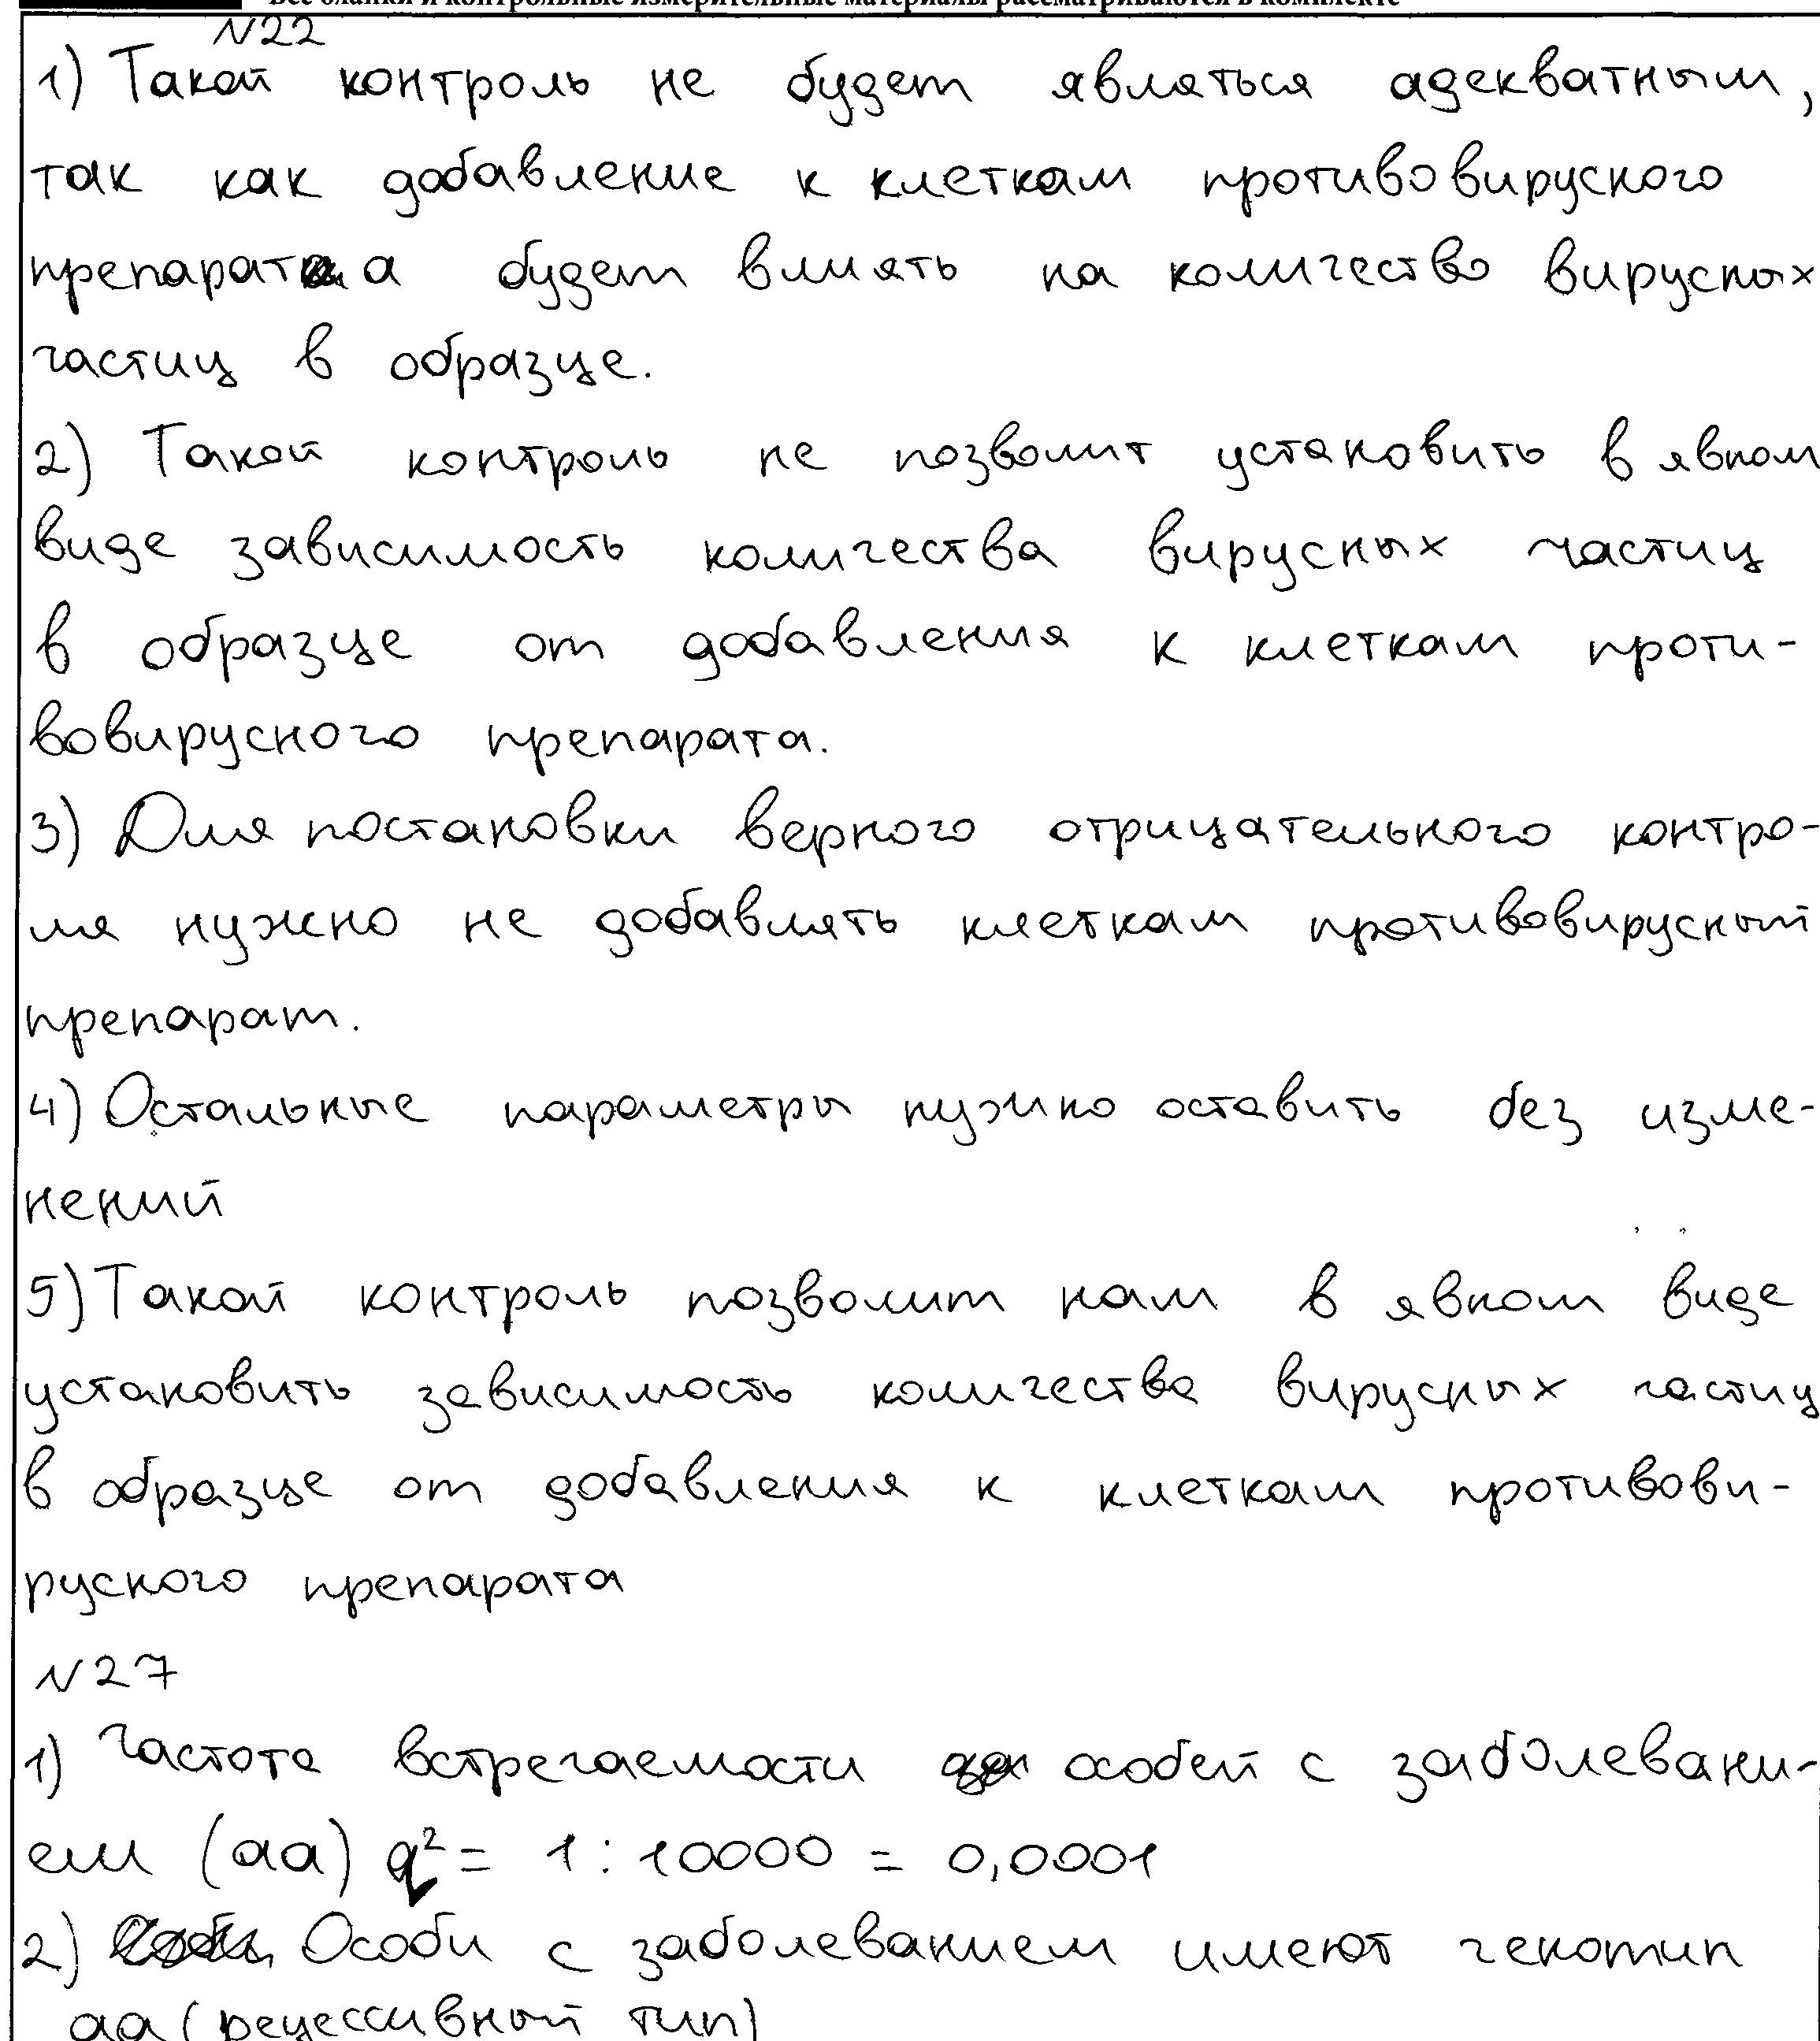 Все бланки и контрольные измерительные материалы рассматриваются в комплекте
№22
1) Такой контроль не будет являться адекватным,
так как добавление к клеткам противовирусного
препарата будет влиять на количество вирусных
частиц в образце.
2) Такой контроль не позволит установить в явном
виде зависимость количества вирусных частиц
в образце от добавления к клеткам проти-
вовирусного препарата.
3) Для постановки верного отрицательного контро-
ля нужно не добавлять клеткам противовирусный
препарат.
4) Остальные параметры нужно оставить без изме-
нений
5) Такой контроль позволит нам в явном виде
установить зависимость количества вирусных частиц
в образце от добавления к клеткам противови-
русного препарата
№27
1) Частота встречаемости особей с заболевани-
ем (аа) q² = 1 : 10000 = 0,0001
2) Особи с заболеванием имеют генотип
аа (рецессивный тип)